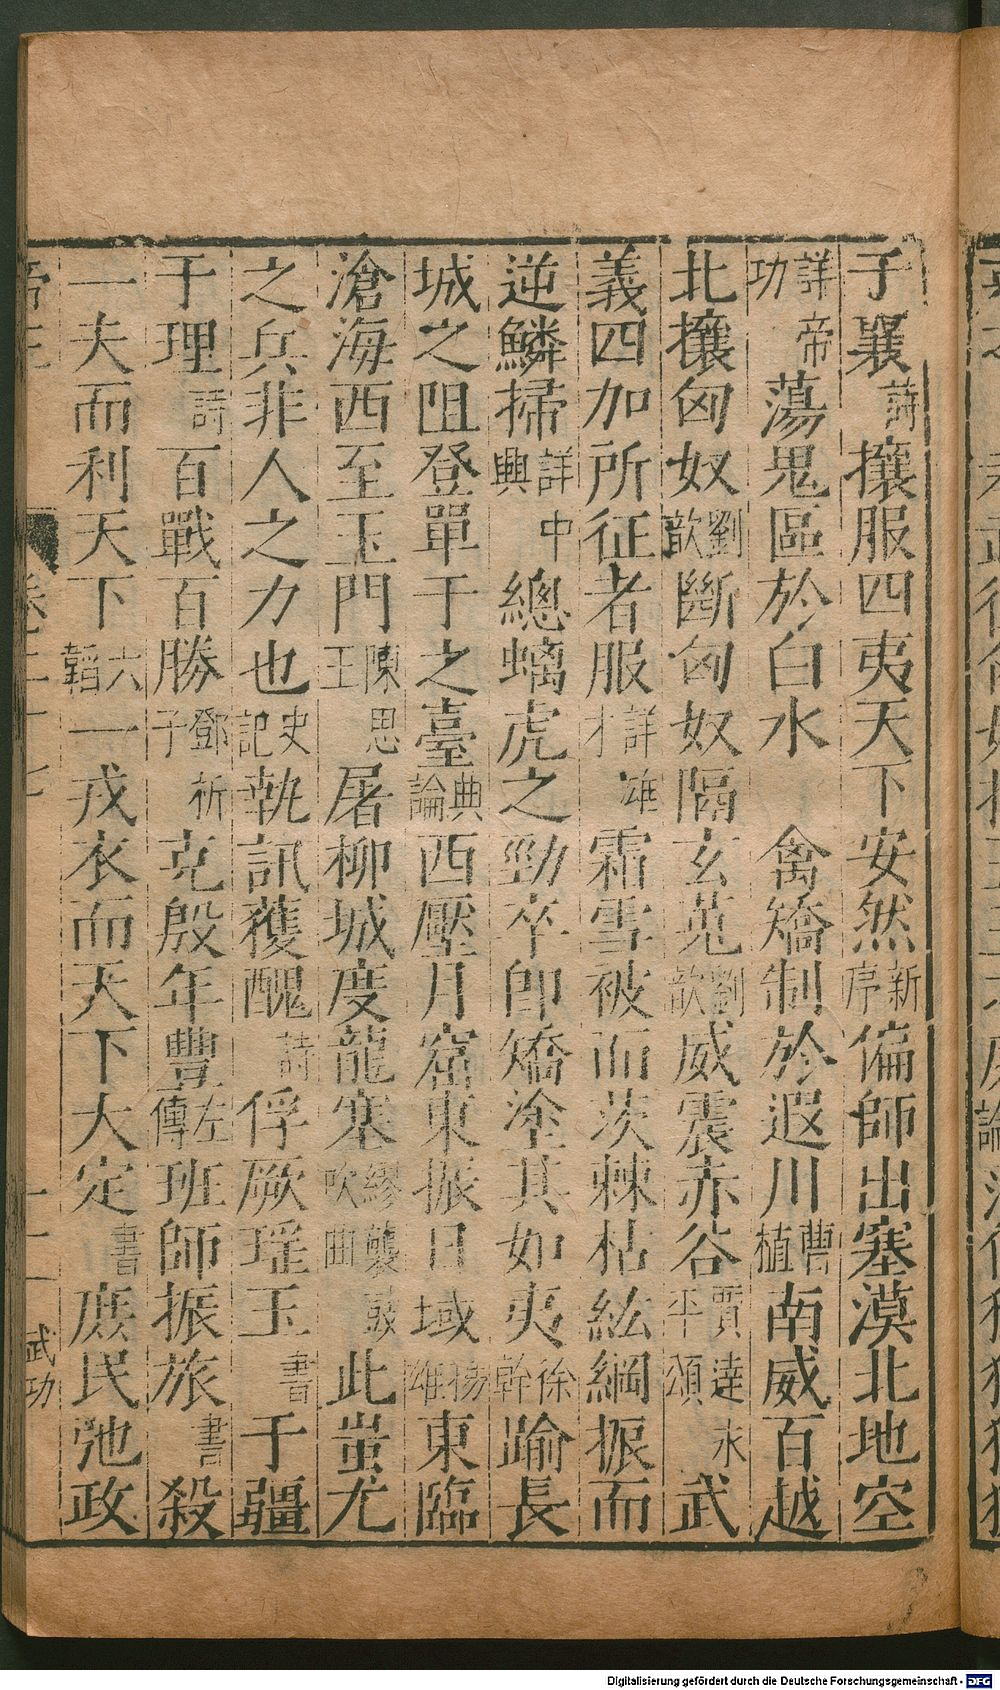 子襄詩攘服四夷天下安然新序偏師出塞漠北地空
詳帝功蕩鬼區於白水禽矯制於遐川曹植南威百越
北攘匈奴劉歆斷匈奴隔玄菟劉歆威震赤谷賈逵永平頌武
義四加所征者服詳雄才霜雪被而茨棘枯紘綱振而
逆鱗掃詳中興總螭虎之勁卒卽矯塗其如夷徐幹踰長
城之阻登單于之臺典論西壓月窟東振日域揚雄東臨
滄海西至玉門陳思王屠柳城度龍塞繆襲鼓吹曲此蚩尤
之兵非人之力也史記執訊獲醜詩俘厥瑶玉書于疆
于理詩百戰百勝鄧析子克殷年豐左傳班師振旅書殺
一夫而利天下六韜一戎衣而天下大定書庶民弛政
武功
Digitalisierung gefördert durch die Deutsche Forschungsgemeinschaft - DFG